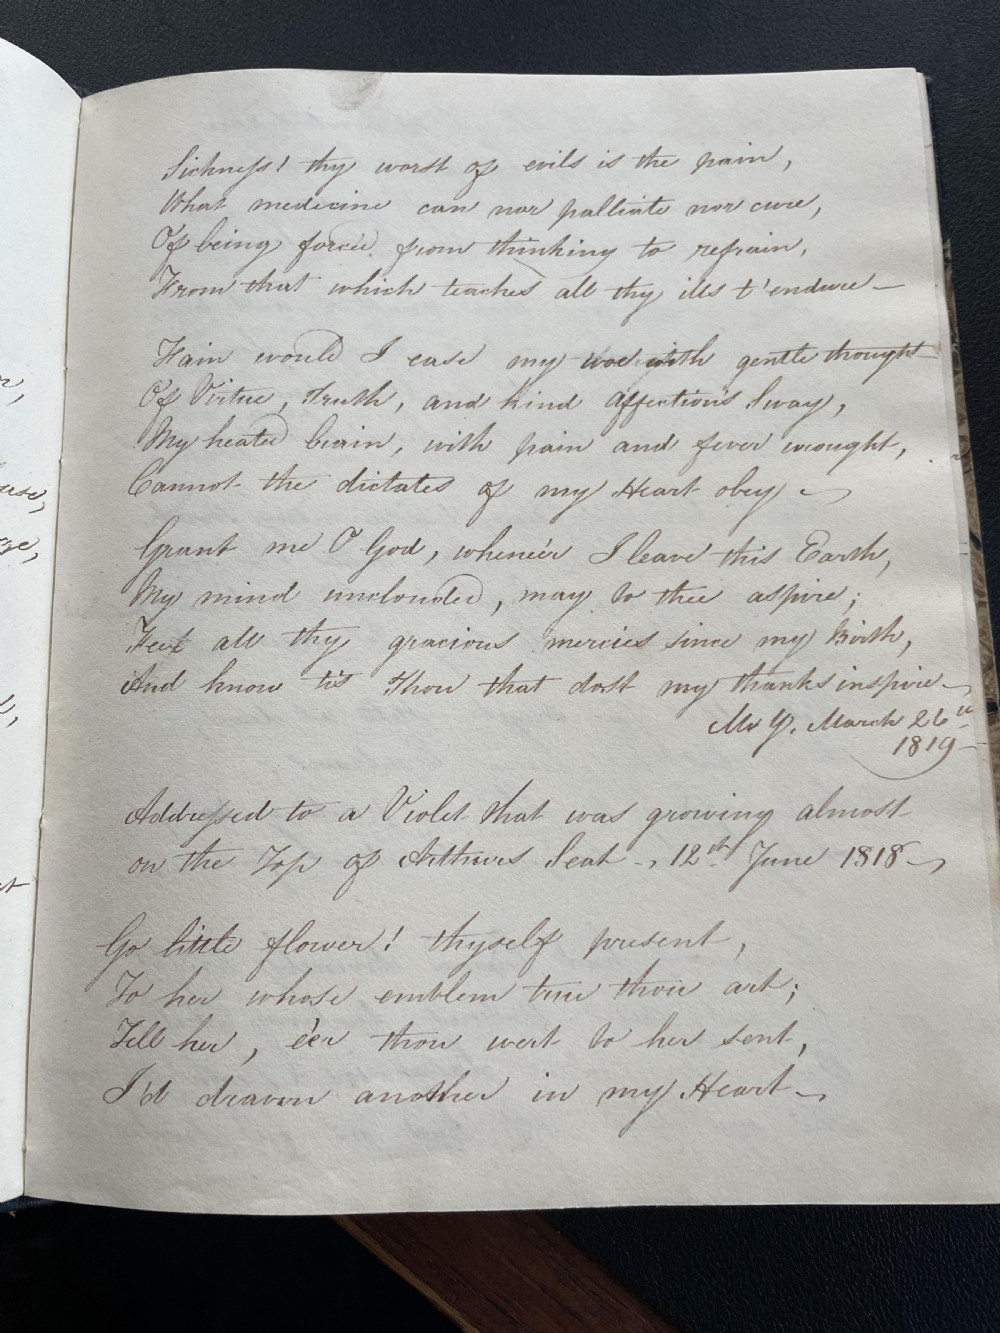 Sickness! thy worst of evils is the pain,
What medicine can nor palliate nor cure,
Of being forced from thinking to refrain,
From that which teaches all thy ills t'endure —
Fain would I ease my woe with gentle thought
Of Virtue, Truth, and kind affection's Sway,
My heated brain, with pain and fever wrought,
Cannot the dictates of my Heart obey —
Grant me O God, whene'er I leave this Earth,
My mind unclouded, may to thee aspire;
Feel all thy gracious mercies since my Birth,
And know tis Thou that dost my thanks inspire —
March 26th
1819 —
Addressed to a Violet that was growing almost
on the Top of Arthurs Seat —, 12th June 1818 —
Go little flower! thyself present,
To her whose emblem true thou art;
Tell her, e'er thou wert to her sent,
I'd drawn another in my Heart —